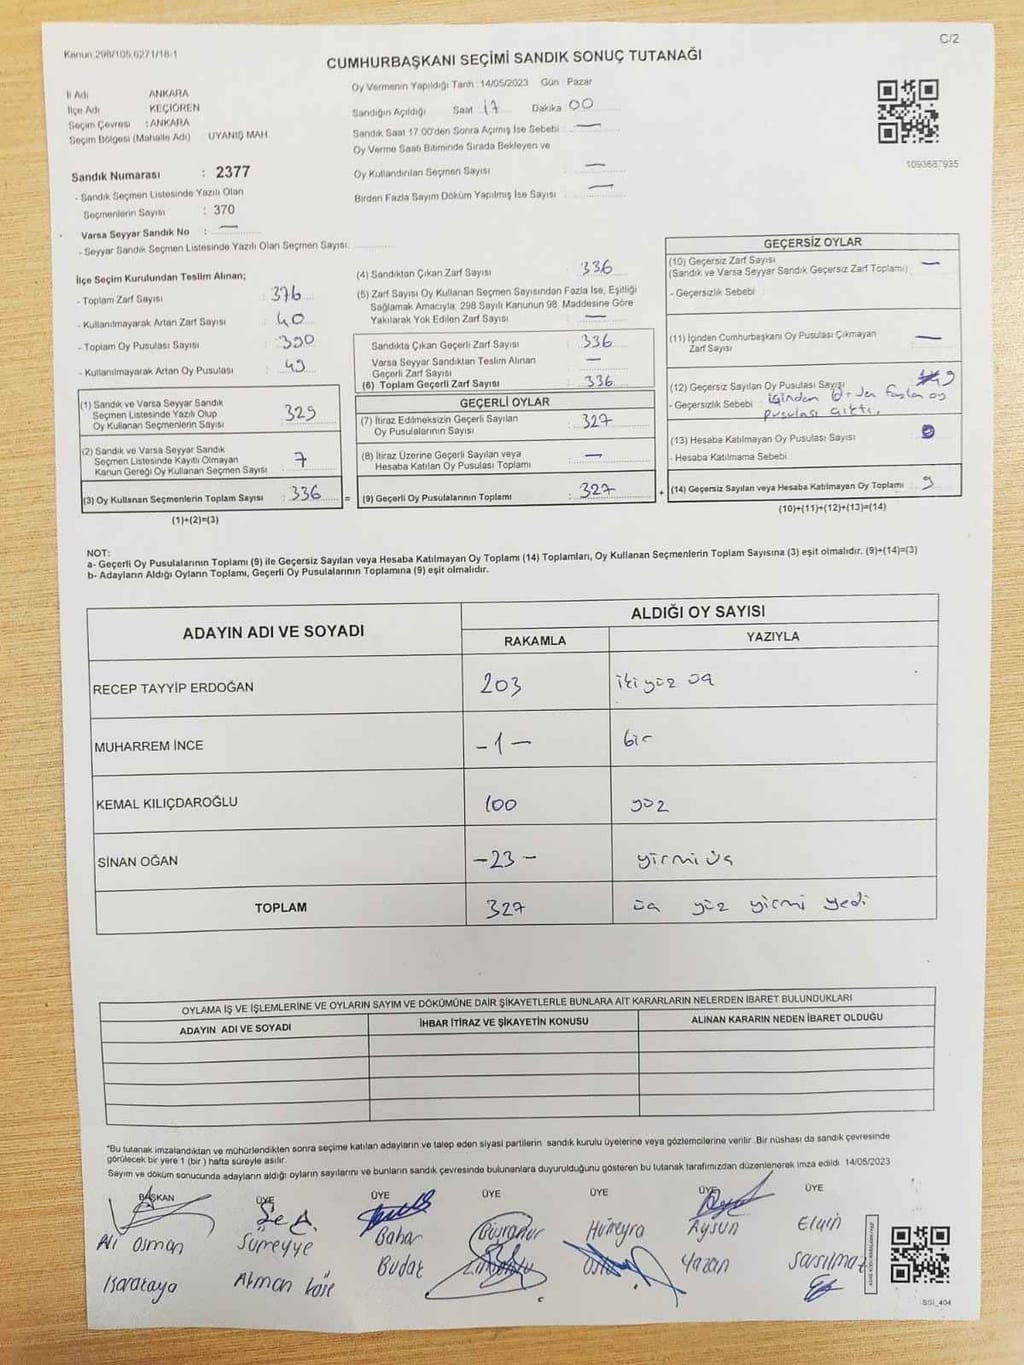 Kanun 298/105,6271/18-1
C/2
CUMHURBAŞKANI SEÇİMİ SANDIK SONUÇ TUTANAĞI
İl Adı ANKARA
İlçe Adı : KEÇİÖREN
Seçim Çevresi : ANKARA
Seçim Bölgesi (Mahalle Adı) UYANIŞ MAH.
Sandık Numarası : 2377
- Sandık Seçmen Listesinde Yazılı Olan
Seçmenlerin Sayısı : 370
Varsa Seyyar Sandık No : —
- Seyyar Sandık Seçmen Listesinde Yazılı Olan Seçmen Sayısı:
Oy Vermenin Yapıldığı Tarih : 14/05/2023 Gün : Pazar
Sandığın Açıldığı Saat 17 Dakika 00
Sandık Saat 17:00'den Sonra Açımış İse Sebebi : —
Oy Verme Saati Bitiminde Sırada Bekleyen ve
Oy Kullandırılan Seçmen Sayısı : —
Birden Fazla Sayım Döküm Yapılmış İse Sayısı : —
1093687935
İlçe Seçim Kurulundan Teslim Alınan;
- Toplam Zarf Sayısı : 376
- Kullanılmayarak Artan Zarf Sayısı : 40
- Toplam Oy Pusulası Sayısı :
- Kullanılmayarak Artan Oy Pusulası :
(1) Sandık ve Varsa Seyyar Sandık
Seçmen Listesinde Yazılı Olup
Oy Kullanan Seçmenlerin Sayısı : 329
(2) Sandık ve Varsa Seyyar Sandık
Seçmen Listesinde Kayıtlı Olmayan
Kanun Gereği Oy Kullanan Seçmen Sayısı : 7
(3) Oy Kullanan Seçmenlerin Toplam Sayısı : 336 =
(1)+(2)=(3)
(4) Sandıktan Çıkan Zarf Sayısı : 336
(5) Zarf Sayısı Oy Kullanan Seçmen Sayısından Fazla İse, Eşitliği
Sağlamak Amacıyla; 298 Sayılı Kanunun 98. Maddesine Göre
Yakılarak Yok Edilen Zarf Sayısı : —
Sandıkta Çıkan Geçerli Zarf Sayısı : 336
Varsa Seyyar Sandıktan Teslim Alınan
Geçerli Zarf Sayısı : —
(6) Toplam Geçerli Zarf Sayısı : 336
GEÇERLİ OYLAR
(7) İtiraz Edilmeksizin Geçerli Sayılan
Oy Pusulalarının Sayısı : 327
(8) İtiraz Üzerine Geçerli Sayılan veya
Hesaba Katılan Oy Pusulası Toplamı : —
(9) Geçerli Oy Pusulalarının Toplamı : 327 +
GEÇERSİZ OYLAR
(10) Geçersiz Zarf Sayısı —
(Sandık ve Varsa Seyyar Sandık Geçersiz Zarf Toplamı)
- Geçersizlik Sebebi :
(11) İçinden Cumhurbaşkanı Oy Pusulası Çıkmayan
Zarf Sayısı —
(12) Geçersiz Sayılan Oy Pusulası Sayısı 9
- Geçersizlik Sebebi : içinden birden fazla oy
pusulası çıktı.
(13) Hesaba Katılmayan Oy Pusulası Sayısı
- Hesaba Katılmama Sebebi :
(14) Geçersiz Sayılan veya Hesaba Katılmayan Oy Toplamı : 9
(10)+(11)+(12)+(13)=(14)
NOT:
a- Geçerli Oy Pusulalarının Toplamı (9) ile Geçersiz Sayılan veya Hesaba Katılmayan Oy Toplamı (14) Toplamları, Oy Kullanan Seçmenlerin Toplam Sayısına (3) eşit olmalıdır. (9)+(14)=(3)
b- Adayların Aldığı Oyların Toplamı, Geçerli Oy Pusulalarının Toplamına (9) eşit olmalıdır.
ADAYIN ADI VE SOYADI
ALDIĞI OY SAYISI
RAKAMLA YAZIYLA
RECEP TAYYİP ERDOĞAN 203 iki yüz üç
MUHARREM İNCE -1- bir
KEMAL KILIÇDAROĞLU 100 yüz
SİNAN OĞAN -23- yirmi üç
TOPLAM 327 üç yüz yirmi yedi
OYLAMA İŞ VE İŞLEMLERİNE VE OYLARIN SAYIM VE DÖKÜMÜNE DAİR ŞİKAYETLERLE BUNLARA AİT KARARLARIN NELERDEN İBARET BULUNDUKLARI
ADAYIN ADI VE SOYADI İHBAR İTİRAZ VE ŞİKAYETİN KONUSU ALINAN KARARIN NEDEN İBARET OLDUĞU
*Bu tutanak imzalandıktan ve mühürlendikten sonra seçime katılan adayların ve talep eden siyasi partilerin sandık kurulu üyelerine veya gözlemcilerine verilir. Bir nüshası da sandık çevresinde
görülecek bir yere 1 (bir) hafta süreyle asılır.
Sayım ve döküm sonucunda adayların aldığı oyların sayılarını ve bunların sandık çevresinde bulunanlara duyurulduğunu gösteren bu tutanak tarafımızdan düzenlenerek imza edildi. 14/05/2023
BAŞKAN ÜYE ÜYE ÜYE ÜYE ÜYE ÜYE
Ali Osman Sümeyye Bahar Hümeyra Aysun Elçin
Karataya Atman Köse Budat Yazan Sarsılmaz
SSİ_404